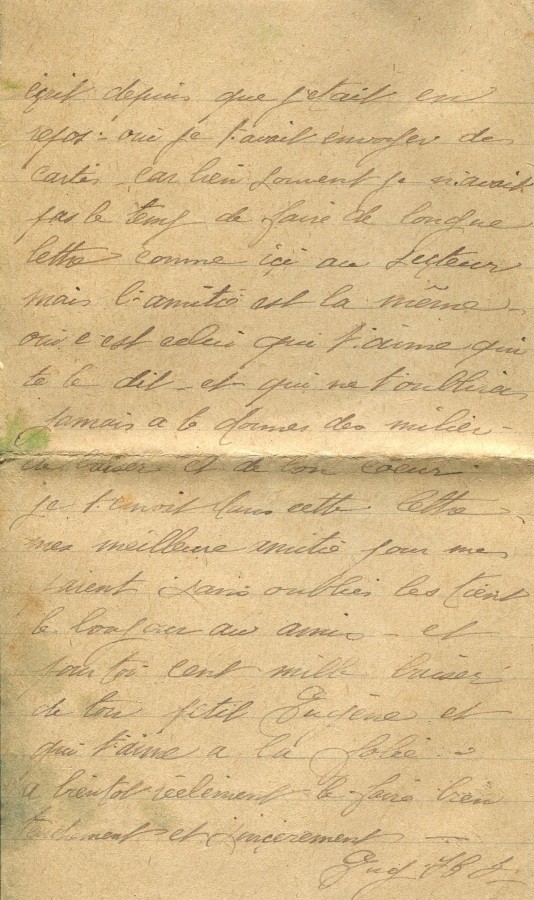 écrit depuis que j'etait en
repos - oui je t'avait envoyer des
cartes car bien souvent je n'avait
pas le temp de faire de longue
lettre comme içi au secteur
mais l'amitié est la même -
oui c'est celui qui t'aime qui
te le dit - et qui ne t'oublira
jamais a te donner des milier -
de baiser et de bon coeur
je t'envoit dans cette lettre
mes meilleure amitié pour mes
parent sans oublier les tient
le bonjour au amis - et
pour toi cent mille baiser
de ton petit Eugène et
qui t'aime a la folie -
a bientot réelement te faire bien
tendrement et sincerement -
Eug